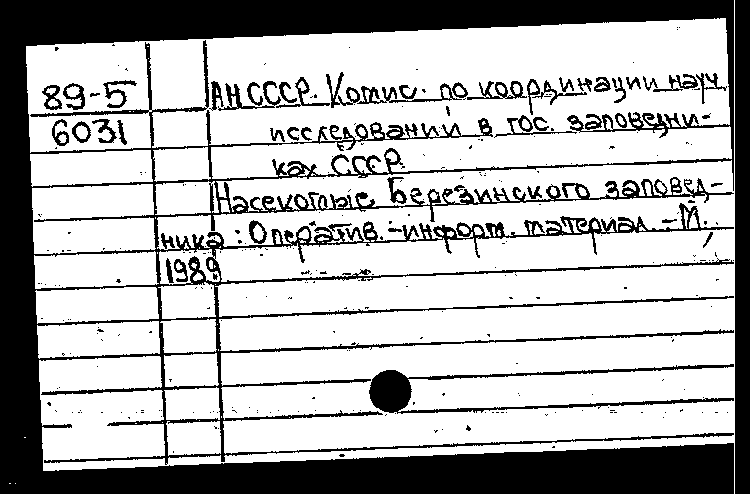 89-5 АН СССР. Комис. по координации науч
6031 исследований в гос. заповедни-
ках СССР.
Насекомые Березинского заповед-
ника : Оператив.-информ. материал. - М.,
1989